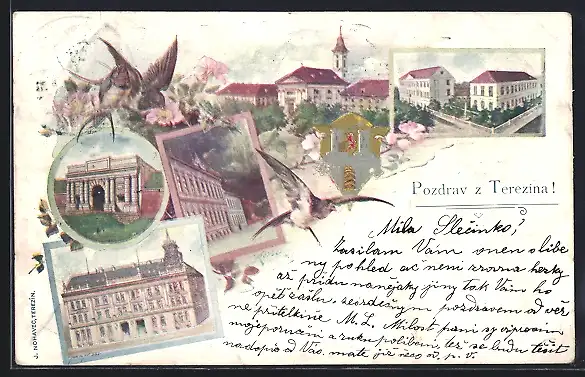 Pozdrav z Terezína!
Milá Slečinko,
Zasílám Vám onen slíbe
ný pohled ač není zrovna hezky
až přijdu na nějaký jiný tak Vám ho
opět zašlu, se srdečným pozdravem od věr
né přítelkyně M. L. Milost paní vyřizuji
mé poručení a ruku políbení, též se budu těšit
na dopis od Vás. máte již
J. NOHAVEC, TEREZÍN.